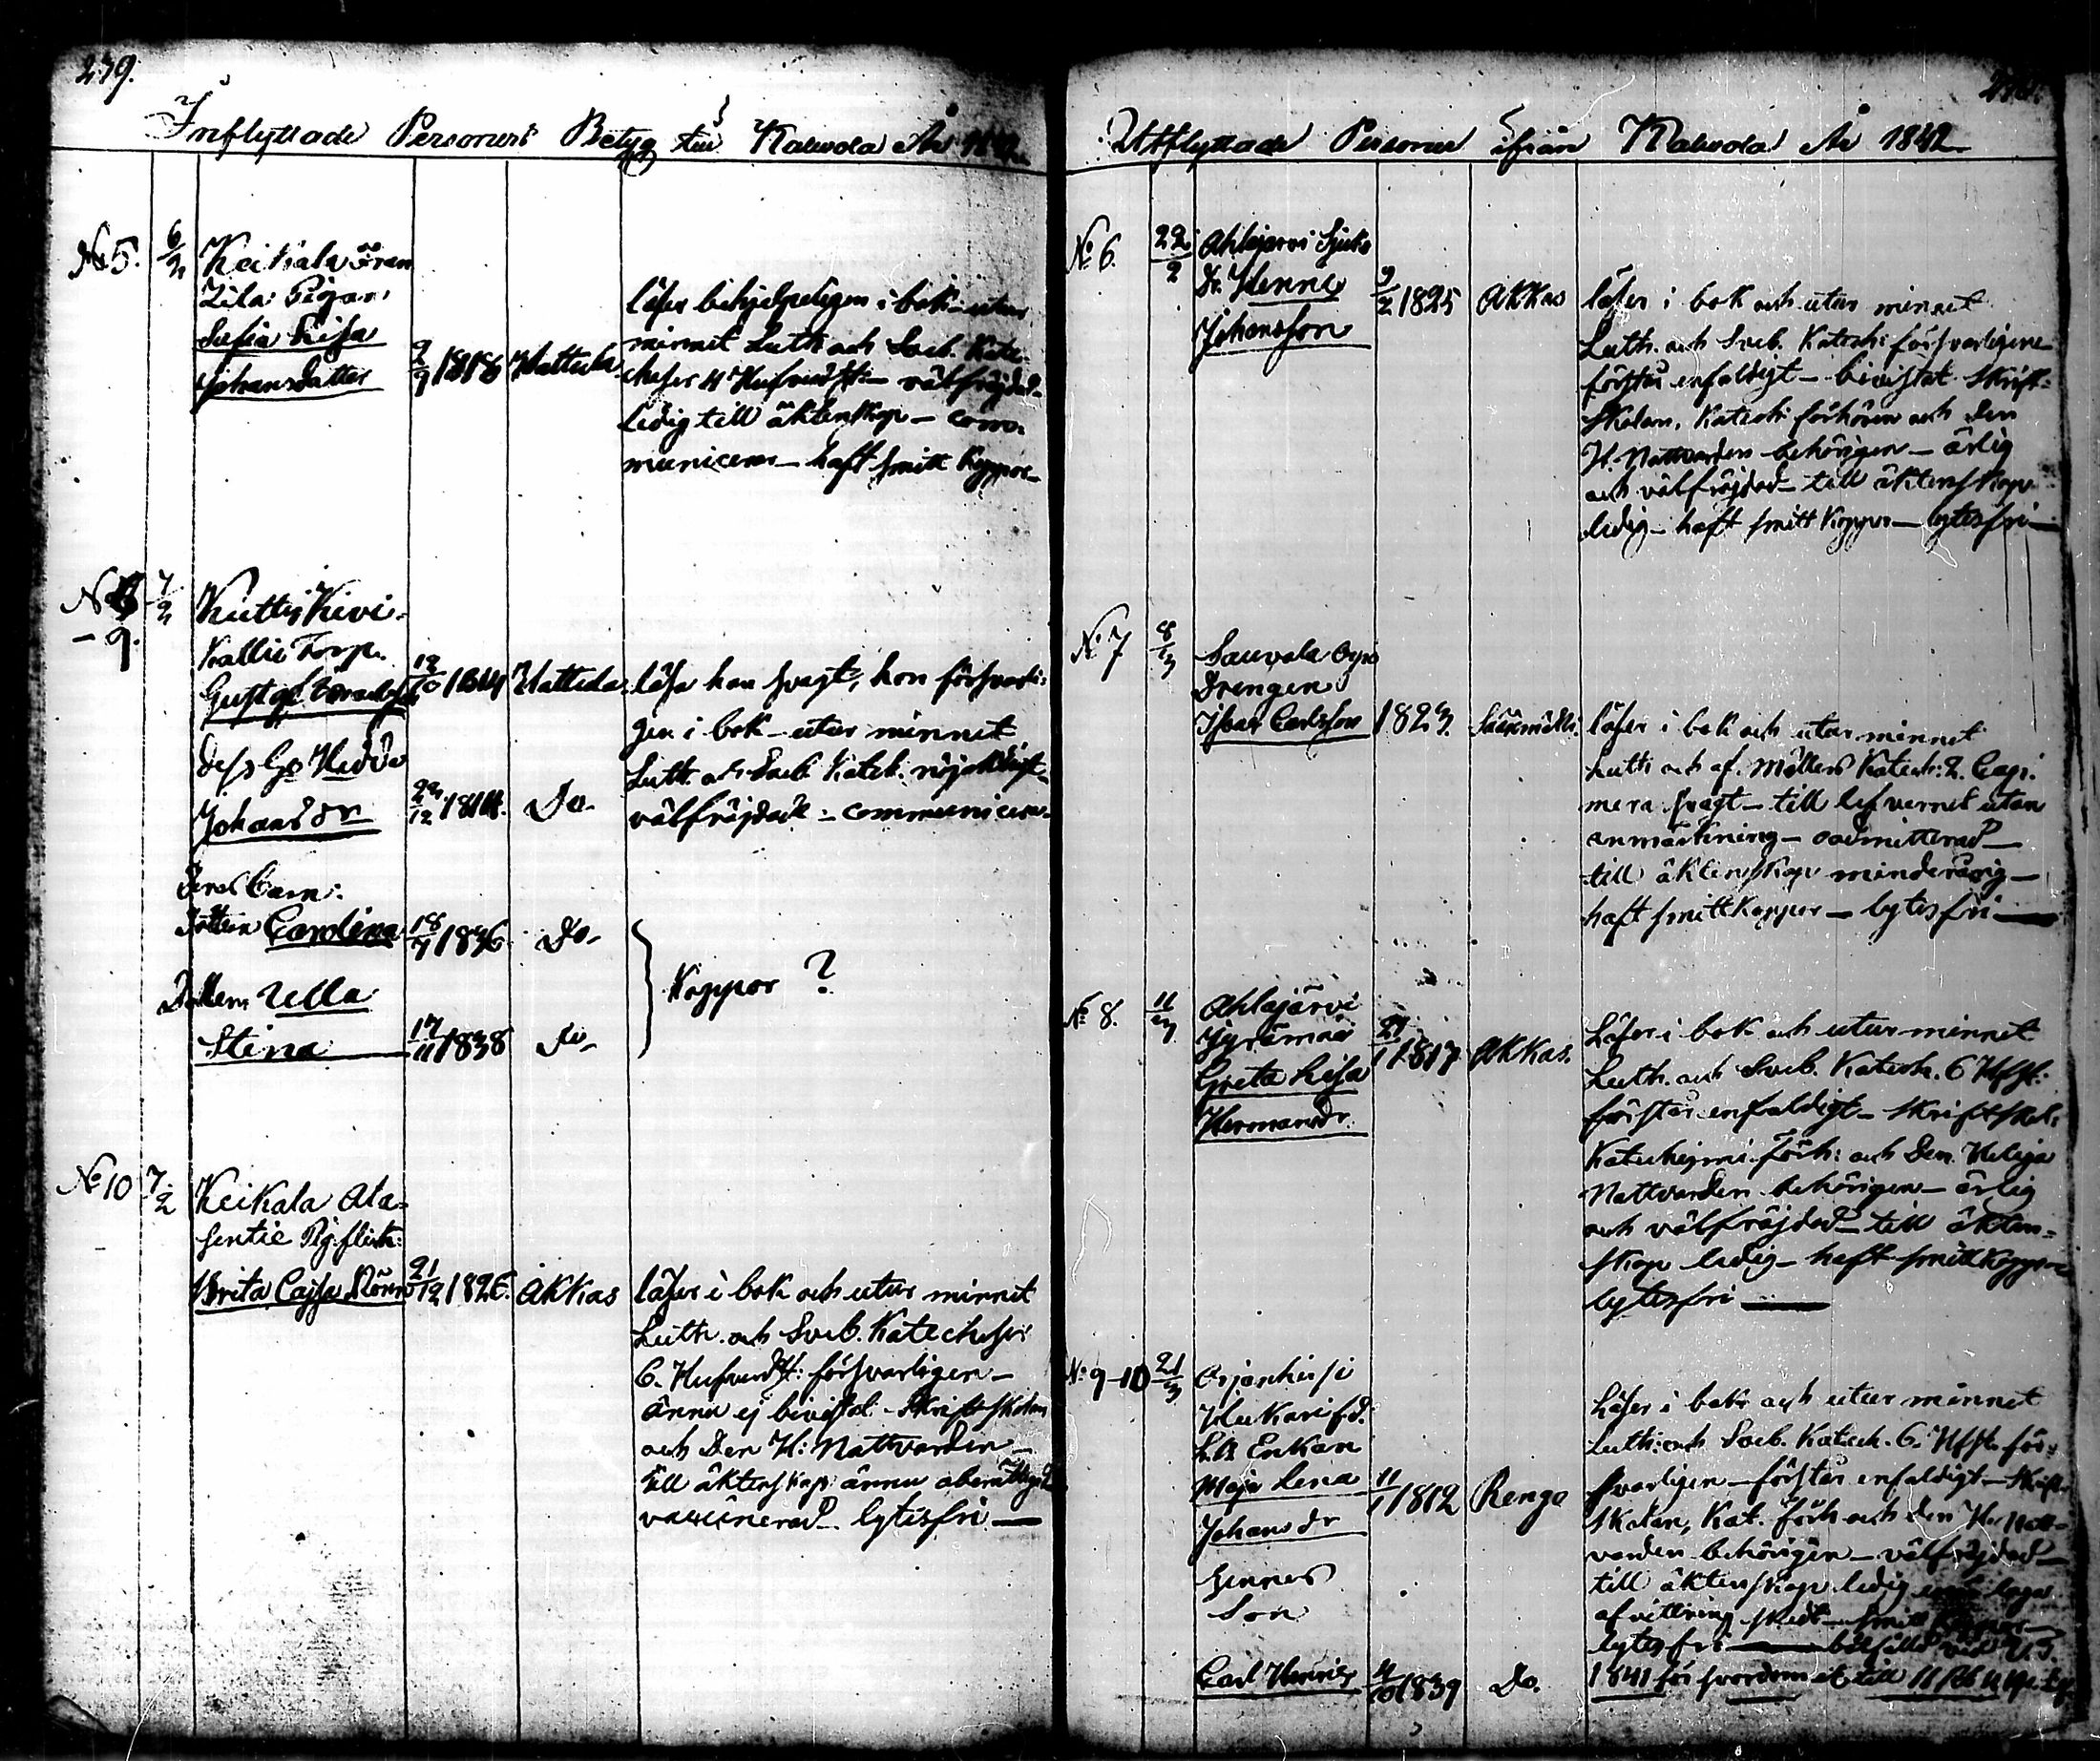 239.
Inflyttade Personers Betyg till Kalvola År 1842.
No 5. 6/2 Keikala Ören
Lila Pigan
Sofia Lisa
Johansdatter 9/9 1818 Hattula
läser behjelpeligen i bok utur
minnet Luth. och Sveb. Kate-
cheser 4 Hufvudst: välfräjdad
ledig till äktenskap – com-
municerar – haft smitt koppor –
No 8 7/2
– 9.
Kuttis Kivi-
kallio Torp.
Gustaf 18/10 1814 Hattula
dess Ho Hedda
Johansdr 22/12 1814. Do.
läsa han svagt, hon försvarli-
gen i bok – utur minnet
Luth. och Sveb. Katech. nöjaktigt –
välfräjdade – communicera –
Deras Barn:
Dottern Carolina 18/7 1836 Do.
Dottern Ulla
Stina 17/11 1838 Do.
Koppor ?
No 10 7/2 Keikala Ala-
Sentie Pig. flick:
Brita Cajsa 21/12 1826. Akkas
läser i bok och utur minnet
Luth. och Sveb. Katecheser
6. Hufvudst: försvarligen –
ännu ej bivistat Skriftskolan
och Den H: Nattvarden –
till äktenskap ännu oberättigad
vaccinerad – lytesfri –
Utflyttade Personer ifrån Kalvola År 1842
No 6. 22/2 Ahlajärvi
Dr. Henric
Johansson 9/2 1825 Akkas
läser i bok och utur minnet
Luth. och Sveb. Katech: försvarligen
förstår enfaldigt – bivistat Skrift-
Skolan, Katech: förhören och Den
H. Nattvarden behörigen – ärlig
och välfräjdad – till äktenskap
ledig – haft smitt koppor – lytesfri –
No 7 8/3 Sauvala
Drengen
Isaac Carlsson 1823. Sääxmäki.
läser i bok och utur minnet
Luth och af Möllers Katech: 2. Cap:
mera svagt – till lefvernet utan
anmärkning – oadmitterad –
till äktenskap minderårig –
haft smittkoppor – lytesfri –
No 8. 11/3 Ahlajärvi
Jyrämäe
Greta Lisa
Hermansdr. 1817 Akkas.
Läser i bok och utur minnet
Luth. och Sveb. Katech. 6 Hfst:
förstår enfaldigt – Skriftskol:
Katechismi Förh: och Den Heliga
Nattvarden behörigen – ärlig
och välfräjdad – till äkten-
skap ledig – haft smittkoppor
lytesfri –
No 9–10 21/3 Orjanhirsi
Huhkari fd.
Enkan
Maja Lena
Johansdr 11/1 1812 Renga
Hennes
Son
Carl Henric 4/10 1839 Do.
Läser i bok och utur minnet
Luth: och Sveb. Katech. 6. Hfst. för-
svarligen – förstår enfaldigt – Skrift
Skolan, Kat. förh och den H. Natt-
varden behörigen – välfräjdad –
till äktenskap ledig laga
afvittring skedt – smitt koppor –
lytesfri –
1841